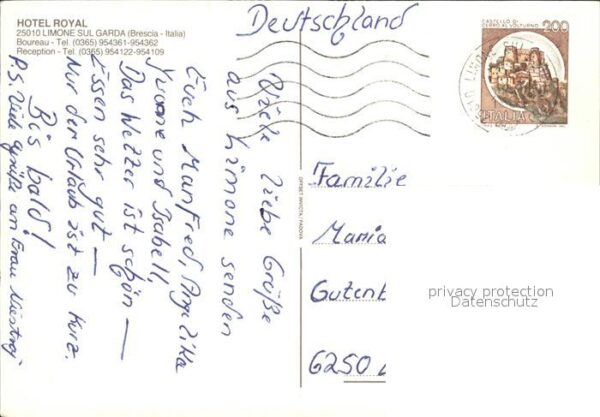 HOTEL ROYAL
25010 LIMONE SUL GARDA (Brescia - Italia)
Boureau - Tel. (0365) 954361-954362
Reception - Tel. (0365) 954122-954109
Deutschland
Viele liebe Grüße
aus Limone senden
Euch Manfred, Angelika
Yvonne und Isabell,
Das Wetter ist schön —
Essen sehr gut —
Nur der Urlaub ist zu kurz.
Bis bald!
P.S. Viele Grüße an Frau
OFFSET INVICTA / PADOVA
CASTELLO DI
CERRO AL VOLTURNO
200
ITALIA
Familie
Maria
Gutenb
6250 L
privacy protection
Datenschutz